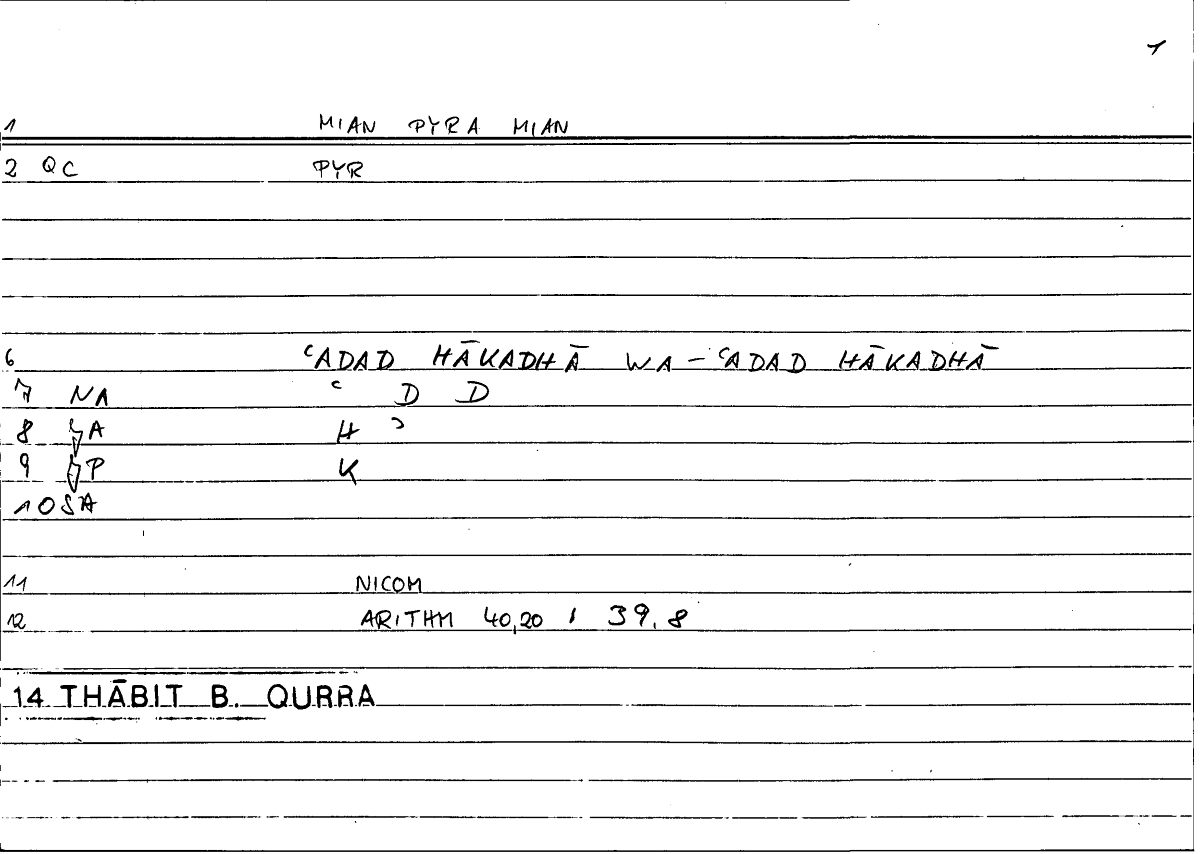 1
1 MIAN PYRA MIAN
2 QC PYR
6 ʿADAD HĀKADHĀ WA-ʿADAD HĀKADHĀ
7 NA ʿ D D
8 A H ʾ
9 P K
10 SA
11 NICOM
12 ARITHM 40,20 / 39,8
14 THĀBIT B. QURRA